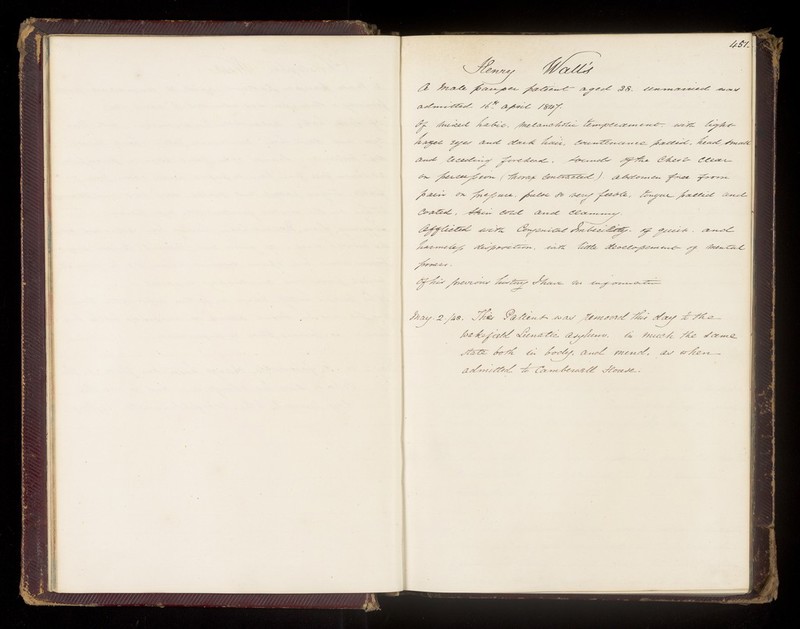 451.
Henry Wall's
A Male pauper patient aged 38. unmarried was
admitted 16th April 1847.
Of mixed habit, melancholic temperament with light
hazel eyes and dark hair, countenance pallid, head small
and receding forehead. Sounds of the Chest clear
on percussion (thorax contracted). abdomen free from
pain on pressure. pulse 80 very feeble, tongue pallid and
coated. Skin cold and clammy.
Afflicted with Congenital Imbecility, of quiet and
harmless disposition, with little developement of mental
power.
Of his previous history I have no information
May 2/48. This Patient was removed this day to the
Wakefield Lunatic Asylum. in much the same
state both in body, and mind, as when
admitted to Camberwell House.